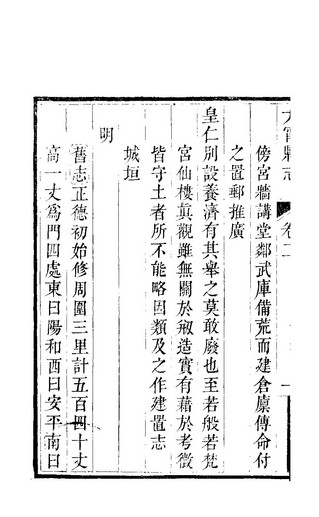 大寧縣志 卷二 一
傍宮牆講堂鄰武庫備荒而建倉廩傳命付
之置郵推廣
皇仁別設養濟有其舉之莫敢廢也至若般若梵
宮仙樓真觀雖無關於椒造實有藉於考徵
皆守土者所不能略因類及之作建置志
明
城垣
舊志正德初始修周圍三里計五百四十丈
高一丈為門四處東曰陽和西曰安平南曰